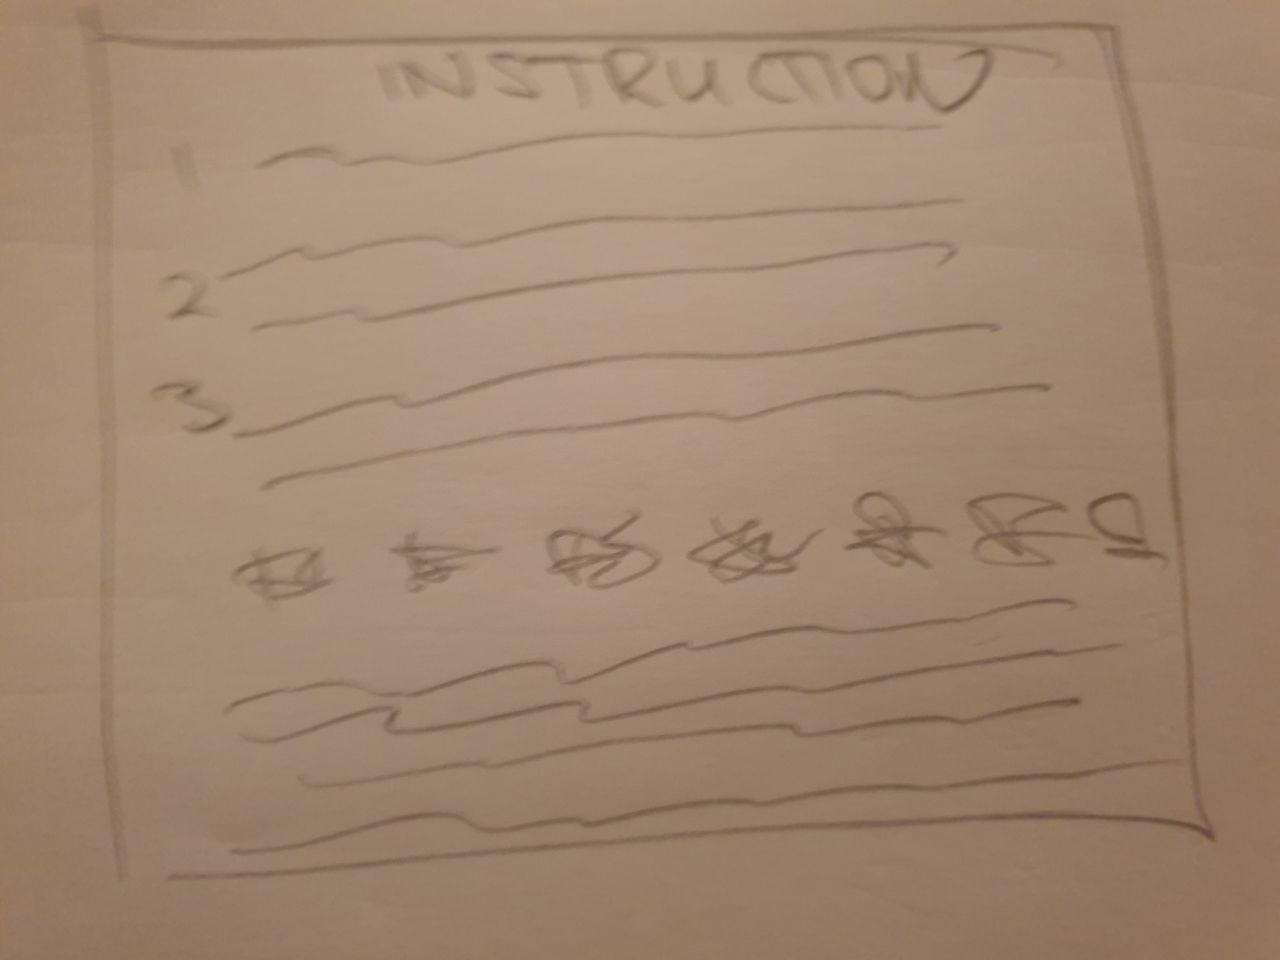 INSTRUCTION
1
2
3